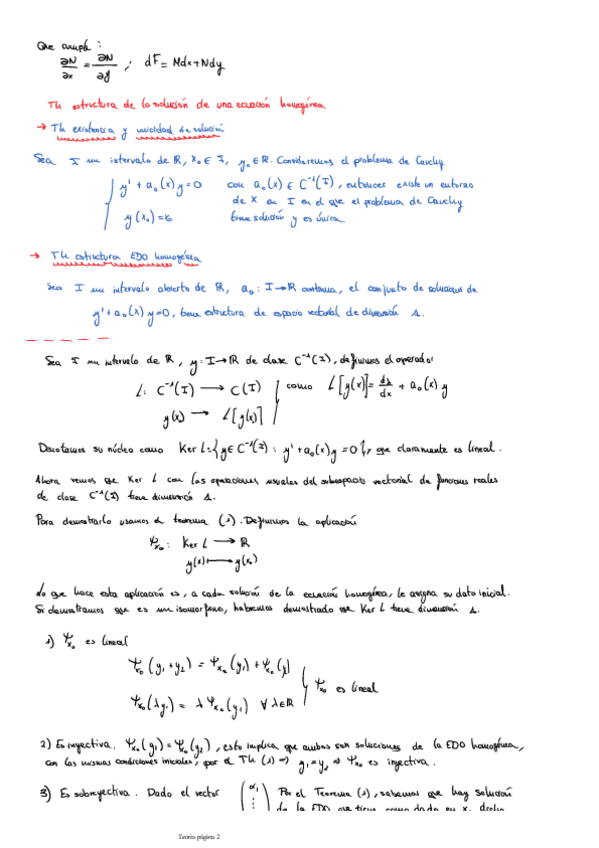 Que cumple :
∂N/∂x = ∂N/∂y ; dF = Mdx+Ndy
Th estructura de la solución de una ecuación homogénea
→ Th existencia y unicidad de solución
Sea I un intervalo de ℝ, x₀ ∈ I, y₀ ∈ ℝ. Consideremos el problema de Cauchy
y' + a₀(x) y = 0 con a₀(x) ∈ C⁻¹(I), entonces existe un entorno
de x en I en el que el problema de Cauchy
y(x₀) = y₀ tiene solución y es única
→ Th estructura EDO homogénea
Sea I un intervalo abierto de ℝ, a₀ : I→ℝ continua, el conjunto de soluciones de
y' + a₀(x) y = 0, tiene estructura de espacio vectorial de dimensión 1.
Sea I un intervalo de ℝ, y : I→ℝ de clase C⁻¹(I), definimos el operador
L : C⁻¹(I) → C(I) como L[y(x)] = dy/dx + a₀(x) y
y(x) → L[y(x)]
Denotamos su núcleo como Ker L = {y ∈ C⁻¹(I) : y' + a₀(x) y = 0}, que claramente es lineal.
Ahora vemos que Ker L con las operaciones usuales del subespacio vectorial de funciones reales
de clase C⁻¹(I) tiene dimensión 1.
Para demostrarlo usamos el teorema (1). Definimos la aplicación
Ψx₀ : Ker L → ℝ
y(x) ↦ y(x₀)
Lo que hace esta aplicación es, a cada solución de la ecuación homogénea, le asigna su dato inicial.
Si demostramos que es un isomorfismo, habremos demostrado que Ker L tiene dimensión 1.
1) Ψx₀ es lineal
Ψx₀(y₁+y₂) = Ψx₀(y₁) + Ψx₀(y₂)
Ψx₀(λy₁) = λ Ψx₀(y₁) ∀ λ∈ℝ
Ψx₀ es lineal
2) Es inyectiva. Ψx₀(y₁) = Ψx₀(y₂), esto implica que ambas son soluciones de la EDO homogénea,
con las mismas condiciones iniciales, por el Th (1) ⇒ y₁ = y₂ ⇒ Ψx₀ es inyectiva.
3) Es sobreyectiva. Dado el vector (α₁ ⋮ Por el Teorema (1), sabemos que hay solución
de la EDO que tiene como dato en x₀ dicho
Teoría página 2